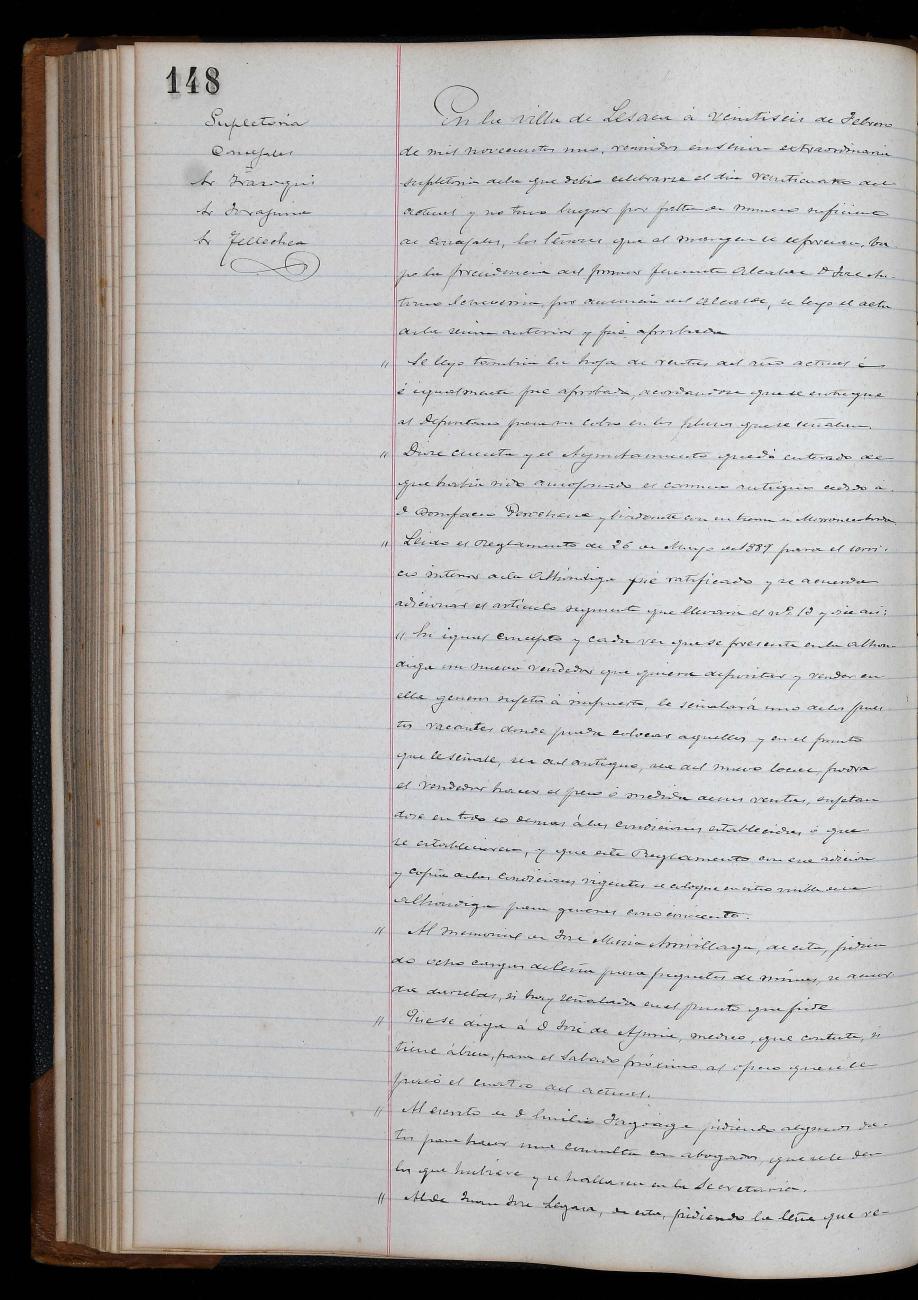 148
Supletoria
Concejales
Sr Irazoqui
Sr
Sr Tellechea
En la villa de Lesaca á veintiseis de Febrero
de mil novecientos uno, reunidos en sesion extraordinaria
supletoria de la que debio celebrarse el dia veinticuatro del
actual y no tuvo lugar por falta de numero suficiente
de Concejales, los Señores que al margen se espresan, ba-
jo la presidencia del primer Teniente Alcalde D José An-
tonio Echeverria, por ausencia del Alcalde, se leyo el acta
de la sesion anterior y fué aprobada
" Se leyo tambien la hoja de rentas del año actual é
é igualmente fue aprobada, acordandose que se entregue
al Depositario para su cobro en los plazos que se señalan.
" Diose cuenta y el Ayuntamiento quedó enterado de
que habia sido amojonado el camino antiguo cedido á
D Bonifacio y lindante con su terreno
" Leido el Reglamento de 26 de Mayo de 1887 para el servi-
cio interior de la Alhóndiga fué ratificado y se acuerda
adicionar el articulo siguiente que llevaria el nº. 13 y dice asi:
" En igual concepto y cada vez que se presente en la alhon-
diga un nuevo vendedor que quiera depositar y vender en
ella generos sujetos á impuesto, le señalará uno de los pues-
tos vacantes donde pueda colocar aquellos y en el punto
que le señale, sea del antiguo, sea del nuevo local, podra
el vendedor hacer el peso ó medida de sus ventas, sujetan-
dose en todo lo demas á las condiciones establecidas ó que
se establecieren, y que este Reglamento con esa adicion
y copia de las condiciones vigentes se coloque en sitio visible en la
Alhóndiga para general conocimiento.
" Al memorial de José Maria Arrivillaga, de esta, pidien-
do ocho cargas de leña para piquetes de minas, se acuer-
da darselas, si hay señalada en el punto que pide
" Que se diga á D José de, medico, que conteste, si
tiene á bien, para el Sabado próximo al oficio que se le
pasó el cuatro del actual.
" Al escrito de D Emilio pidiendo algunos da-
tos para hacer una consulta con abogados, que se le den
los que hubiere y se hallasen en la Secretaria.
" Al de Juan José, de esta, pidiendo la leña que re-